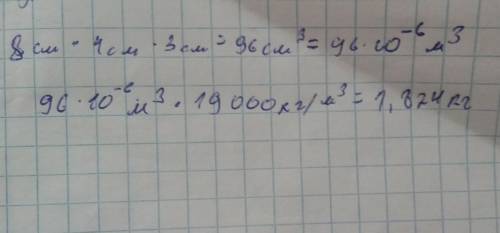 8см · 4см · 3см = 96см³ = 96·10⁻⁶м³
96·10⁻⁶м³ · 19000кг/м³ = 1,824кг